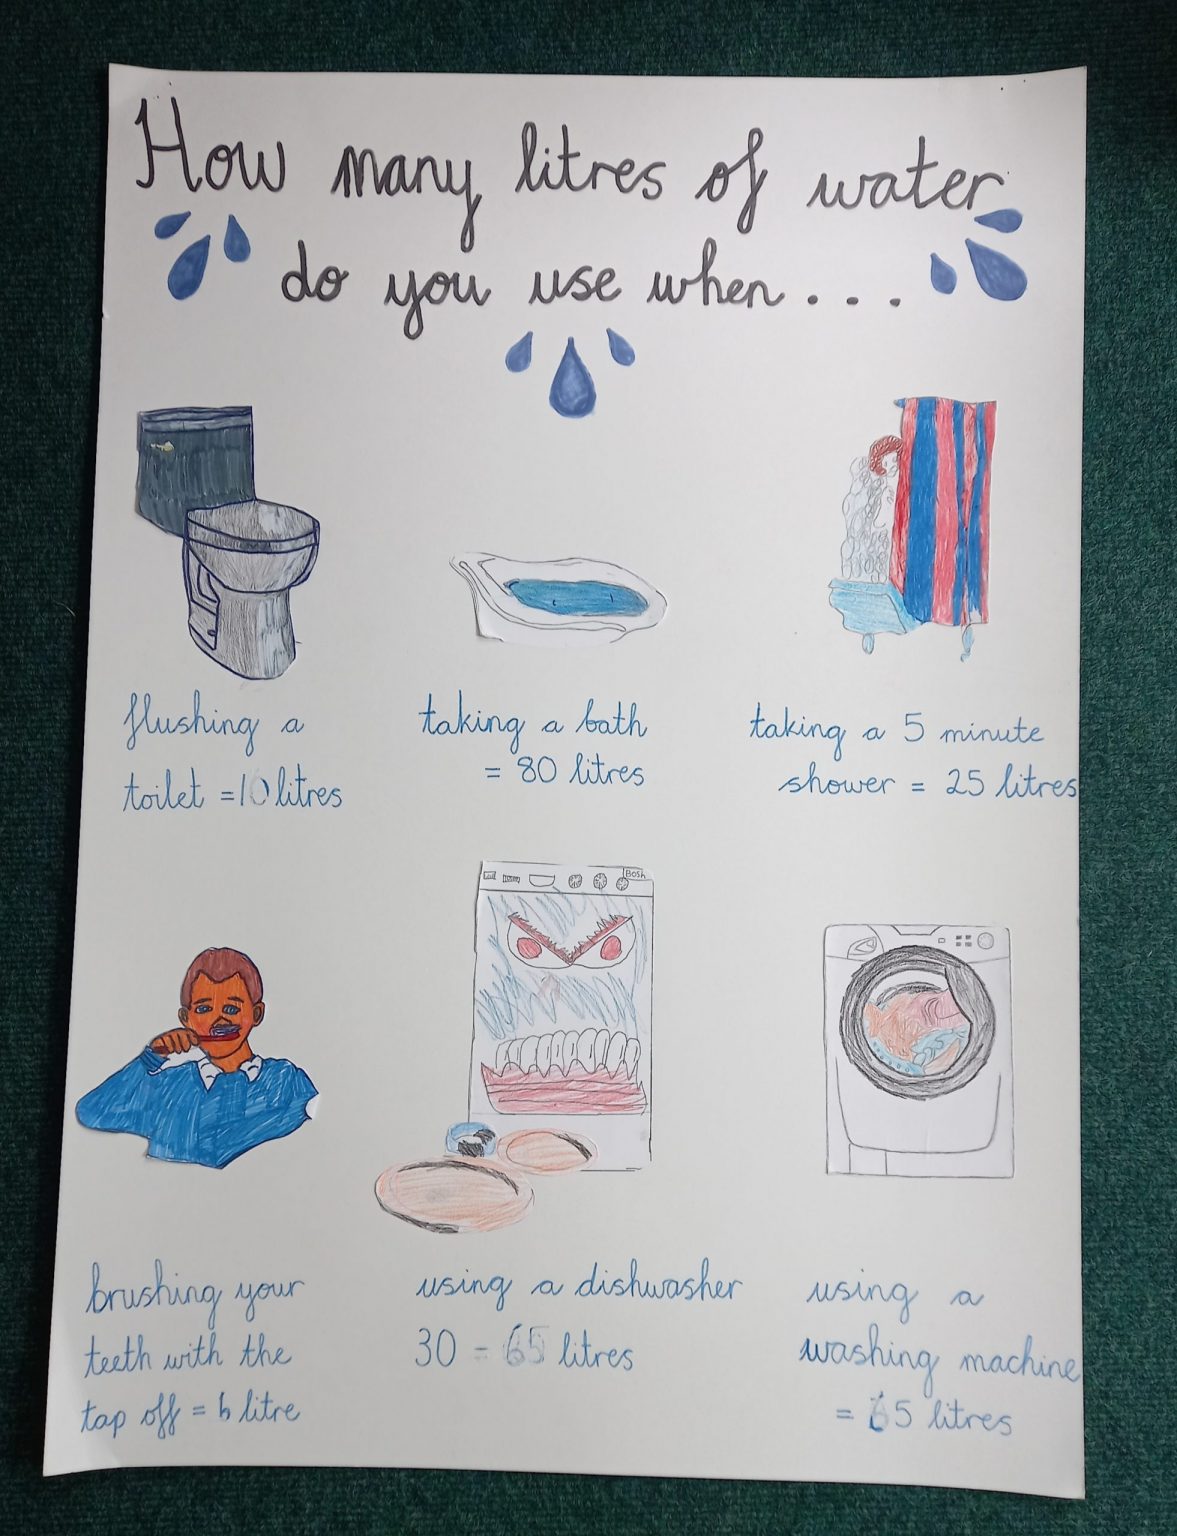 How many litres of water
do you use when...
flushing a
toilet = 10 litres
taking a bath
= 80 litres
taking a 5 minute
shower = 25 litres
BOSH
brushing your
teeth with the
tap off = 6 litre
using a dishwasher
30 = 65 litres
using a
washing machine
= 65 litres